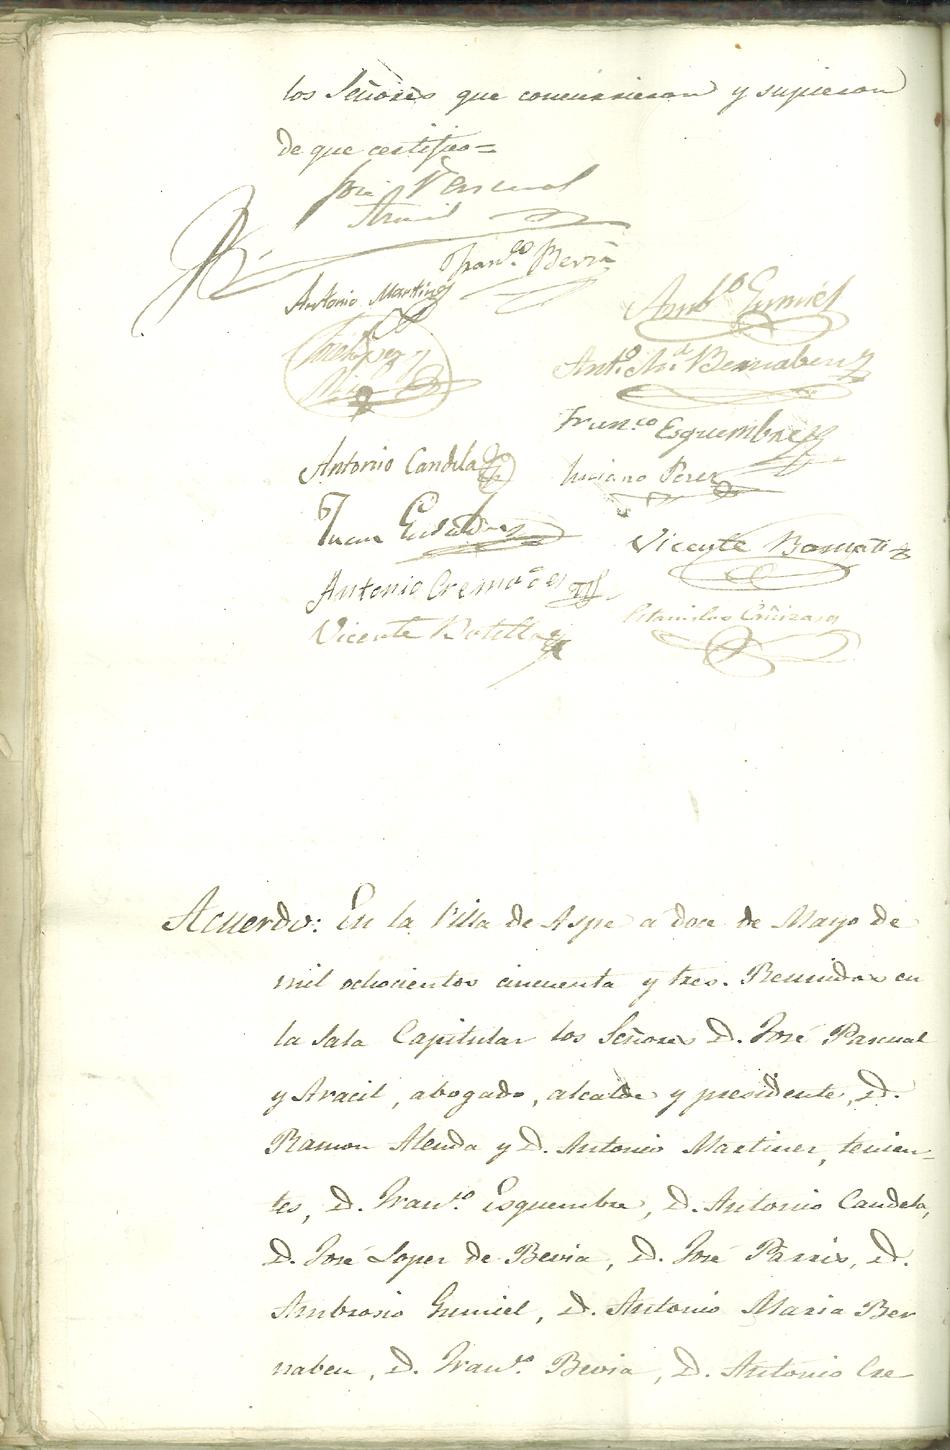 los Señores que concurrieron y supieron
de que certifico=
José Pascual
Aracil
Fran.co Bevia
Antonio Martinez
Amb.o Gumiel
José Lopez
Ant.o M.a Bernabeu
Fran.co Esquembre
Antonio Candela
Luciano Perez
Juan
Vicente Bonmati
Antonio Cremades
Estanislao Cañizares
Vicente Botella
Acuerdo: En la Villa de Aspe a doce de Mayo de
mil ochocientos cincuenta y tres. Reunidos en
la Sala Capitular los Señores D. José Pascual
y Aracil, abogado, alcalde y presidente, D.
Ramon Alenda y D. Antonio Martinez, tenien-
tes, D. Fran.co Esquembre, D. Antonio Candela,
D. José Lopez de Bevia, D. José Parris, D.
Ambrosio Gumiel, D. Antonio Maria Ber
nabeu, D. Fran.co Bevia, D. Antonio Cre